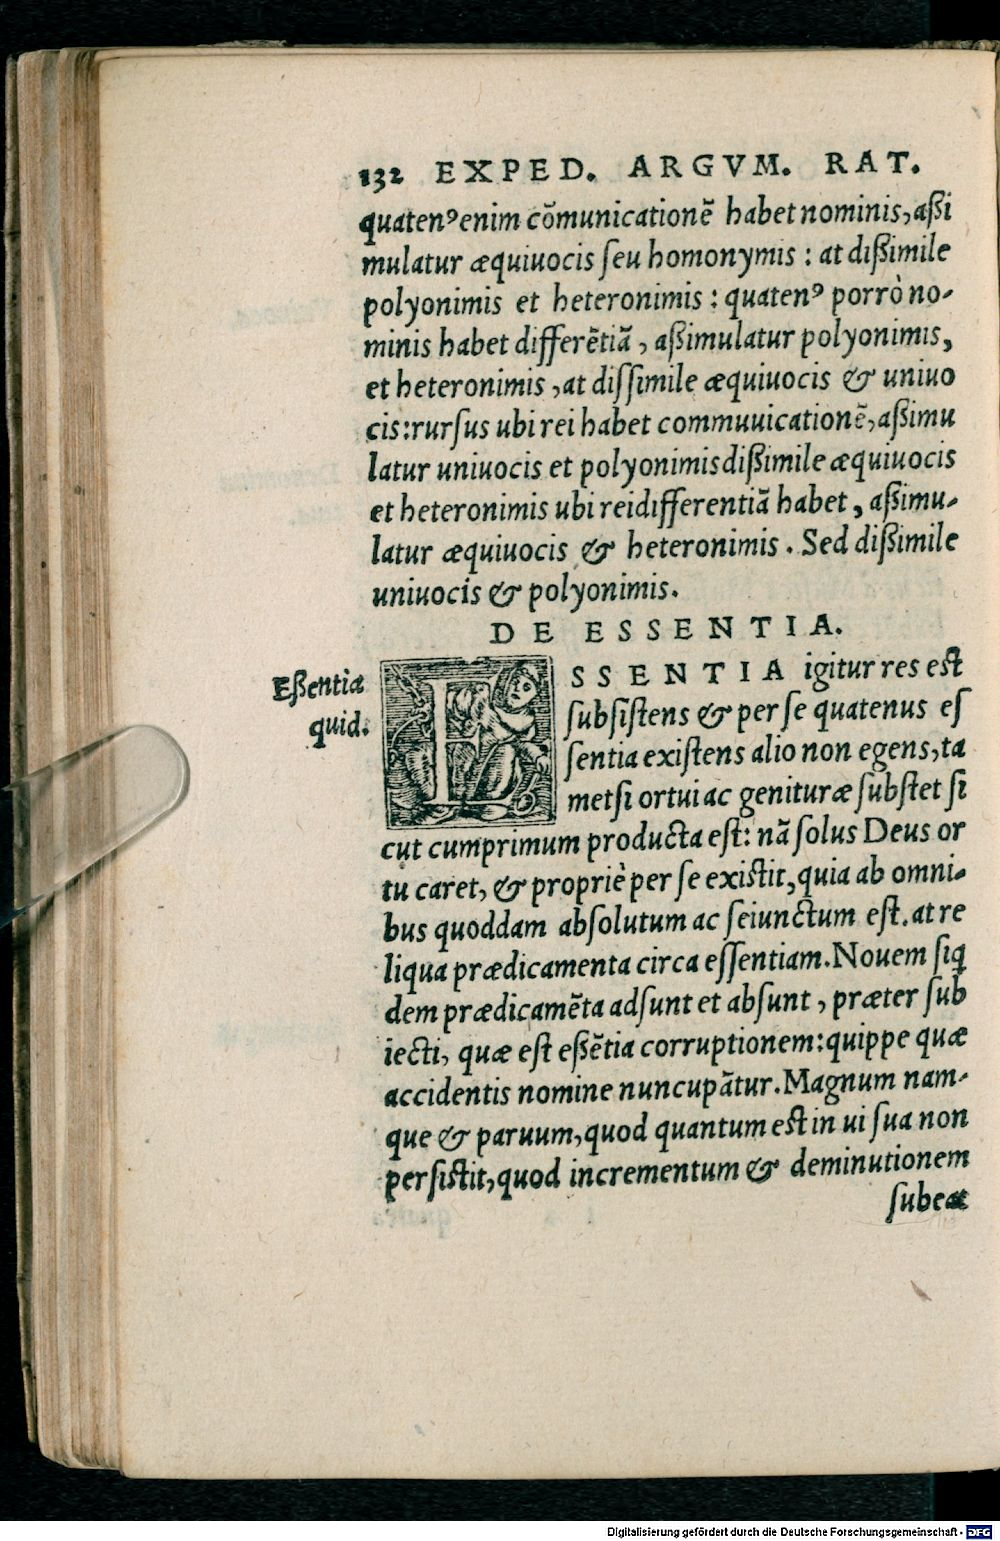 132 EXPED. ARGVM. RAT.
quatenꝰ enim cōmunicationē habet nominis, aſſi
mulatur æquiuocis ſeu homonymis : at diſſimile
polyonimis et heteronimis : quatenꝰ porrò no-
minis habet differētiā, aſſimulatur polyonimis,
et heteronimis, at diſſimile æquiuocis & uniuo
cis: rurſus ubi rei habet commuuicationē, aſſimu
latur uniuocis et polyonimis diſſimile æquiuocis
et heteronimis ubi rei differentiā habet, aſſimu-
latur æquiuocis & heteronimis. Sed diſſimile
uniuocis & polyonimis.
DE ESSENTIA.
Eſſentiæ
quid.
ESSENTIA igitur res eſt
ſubſiſtens & per ſe quatenus eſ
ſentia exiſtens alio non egens, ta
metſi ortui ac genituræ ſubſtet ſi
cut cumprimum producta eſt: nā ſolus Deus or
tu caret, & propriè per ſe exiſtit, quia ab omni-
bus quoddam abſolutum ac ſeiunctum eſt. at re
liqua prædicamenta circa eſſentiam. Nouem ſiq
dem prædicamēta adſunt et abſunt, præter ſub
iecti, quæ eſt eſſētia corruptionem: quippe quæ
accidentis nomine nuncupātur. Magnum nam-
que & paruum, quod quantum eſt in ui ſua non
perſiſtit, quod incrementum & deminutionem
ſubeat
Digitalisierung gefördert durch die Deutsche Forschungsgemeinschaft - DFG